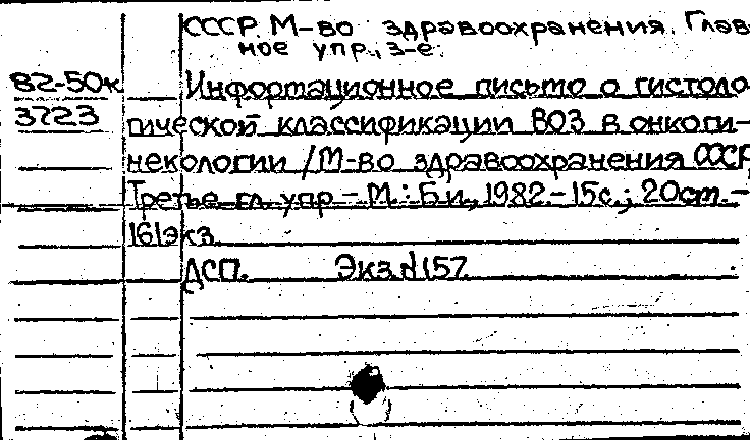 СССР. М-во здравоохранения. Глав
ное упр., 3-е.
82-50к
3723
Информационное письмо о гистоло
гической классификации ВОЗ в онкоги-
некологии / М-во здравоохранения СССР,
Третье гл. упр. – М.: Б.и., 1982. – 15с.; 20см. –
161экз.
ДСП. Экз. №157